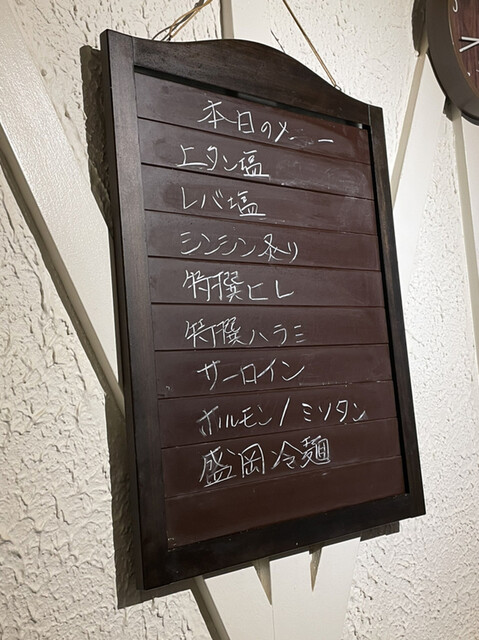 本日のメニュー
上タン塩
レバ塩
シンシン炙り
特撰ヒレ
特撰ハラミ
サーロイン
ホルモン/ミソタン
盛岡冷麺